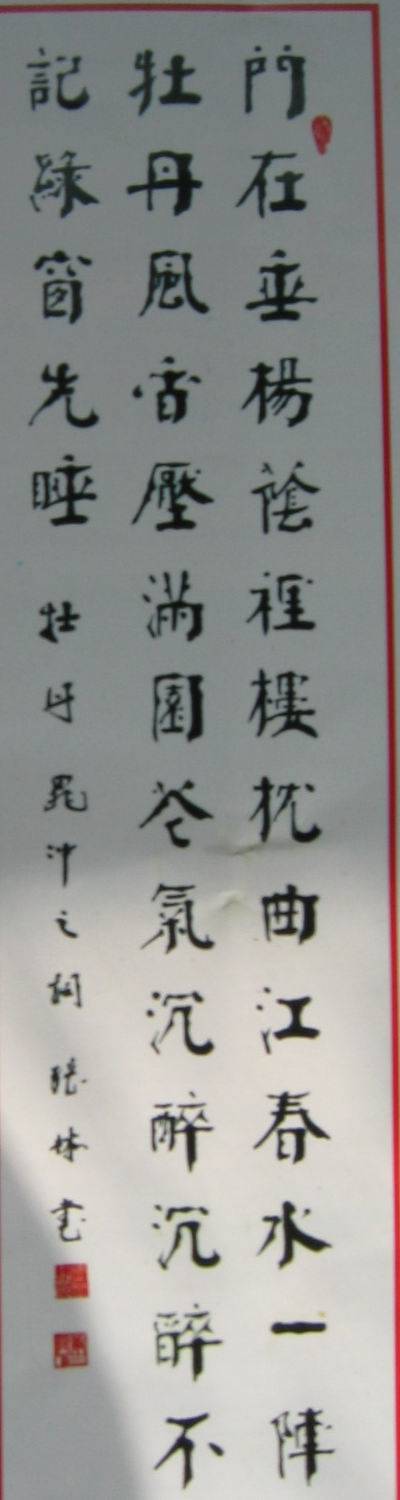 門在垂楊蔭裡樓枕曲江春水一陣
牡丹風香壓滿園花氣沉醉沉醉不
記綠窗先睡
牡丹晁冲之詞張林書